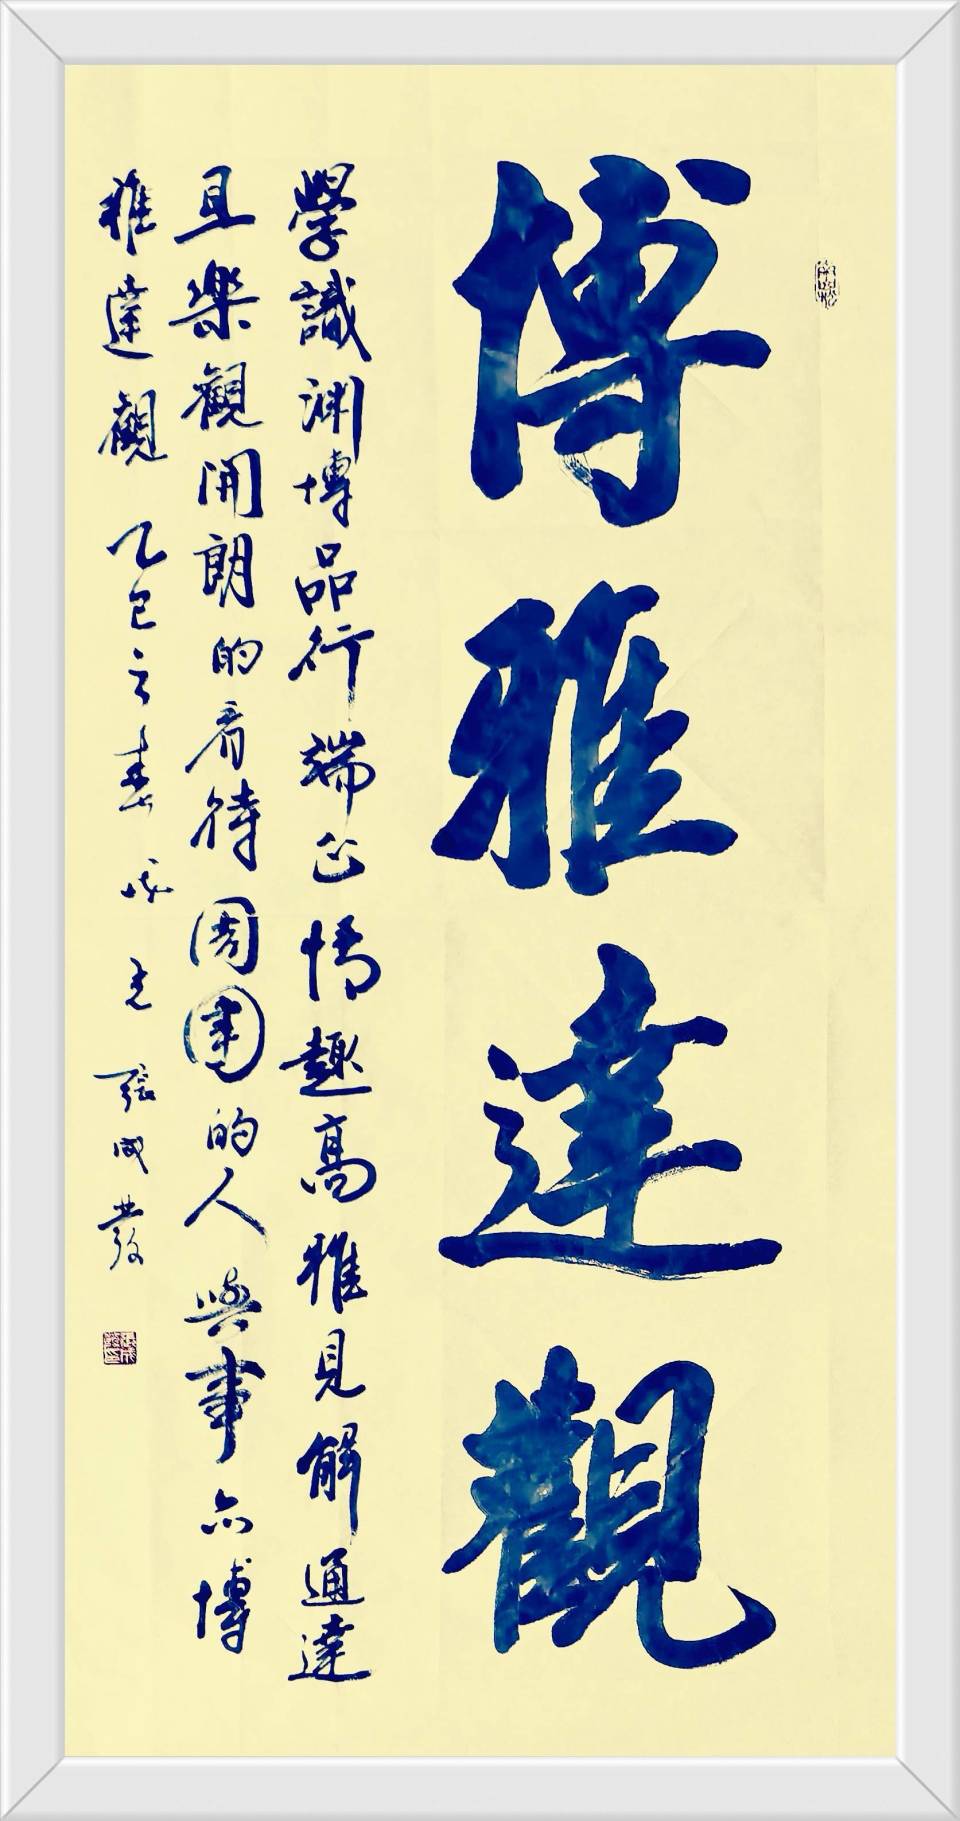 博雅達觀
學識淵博品行端正情趣高雅見解通達
且樂觀開朗的看待周圍的人與事亦博
雅達觀 乙巳之春 張成發